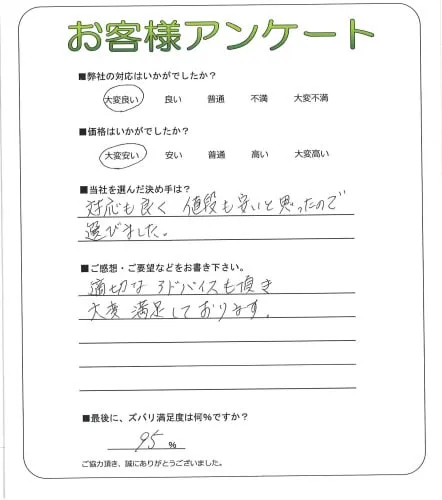 お客様アンケート
■弊社の対応はいかがでしたか?
大変良い 良い 普通 不満 大変不満
■価格はいかがでしたか?
大変安い 安い 普通 高い 大変高い
■当社を選んだ決め手は?
対応も良く 値段も安いと思ったので
選びました。
■ご感想・ご要望などをお書き下さい。
適切なアドバイスも頂き
大変満足しております。
■最後に、ズバリ満足度は何%ですか?
95 %
ご協力頂き、誠にありがとうございました。